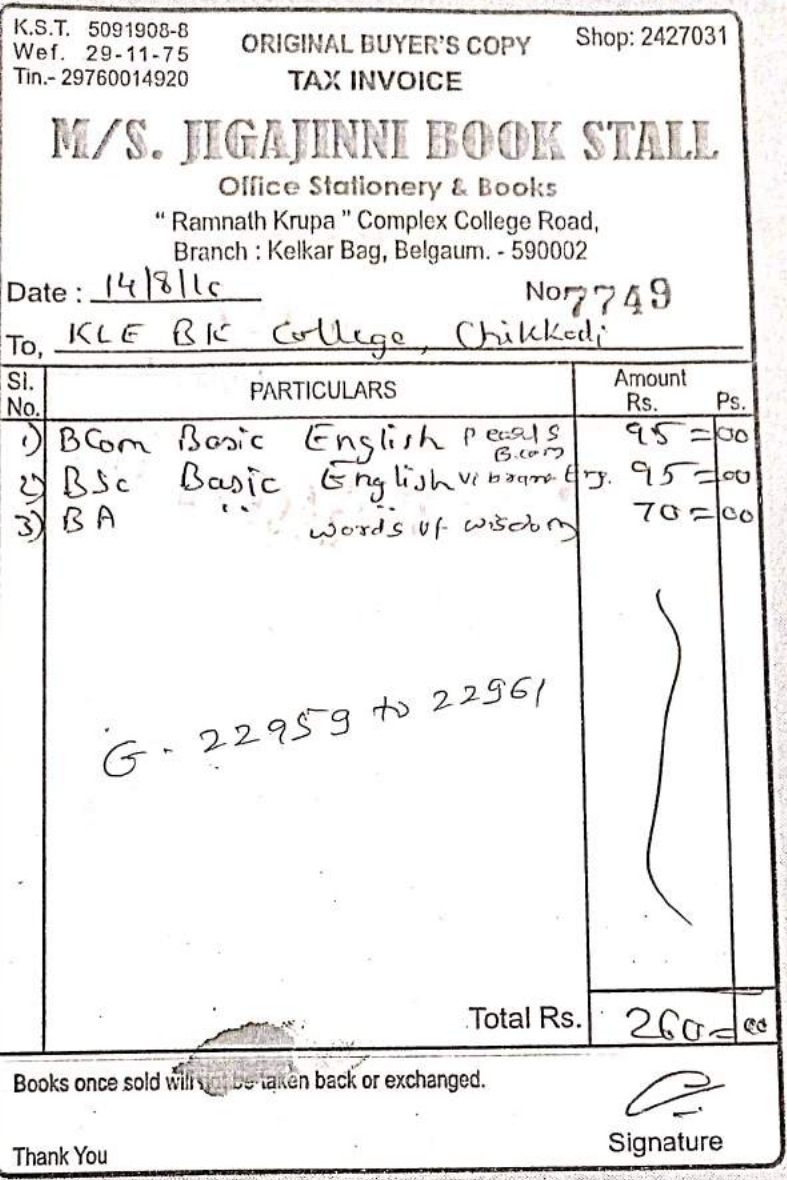 K.S.T. 5091908-8
Wef. 29-11-75
Tin.- 29760014920
ORIGINAL BUYER'S COPY
TAX INVOICE
Shop: 2427031
M/S. JIGAJINNI BOOK STALL
Office Stationery & Books
" Ramnath Krupa " Complex College Road,
Branch : Kelkar Bag, Belgaum. - 590002
Date : 14/8/ No 7749
To, KLE BK College, Chikkodi
Sl. No. PARTICULARS Amount Rs. Ps.
1) BCom Basic English Pearls B.com 95=00
2) BSc Basic English 95=00
3) BA " " words of wisdom 70=00
G - 22959 to 22961
Total Rs. 260=00
Books once sold will not be taken back or exchanged.
Signature
Thank You